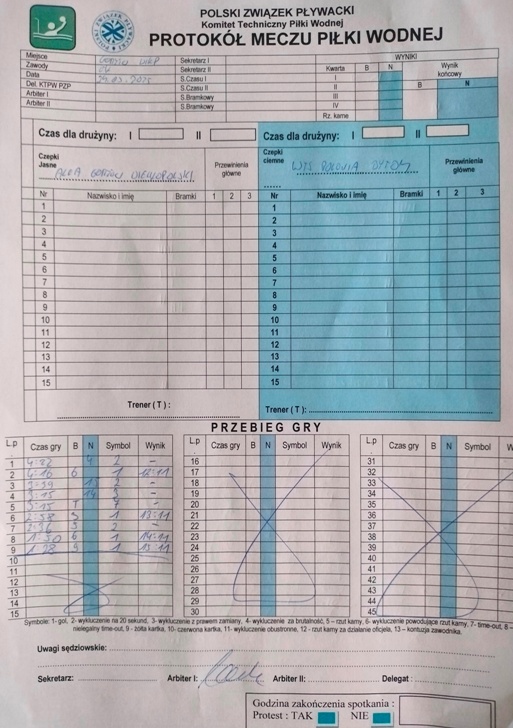 POLSKI ZWIĄZEK PŁYWACKI
Komitet Techniczny Piłki Wodnej
PROTOKÓŁ MECZU PIŁKI WODNEJ
POLSKI ZWIĄZEK PŁYWACKI
Miejsce GORZÓW WLKP Sekretarz I WYNIKI
Zawody Sekretarz II Kwarta B N Wynik końcowy
Data S.Czasu I I
Del. KTPW PZP S.Czasu II II B N
Arbiter I S.Bramkowy III
Arbiter II S.Bramkowy IV
Rz. karne
Czas dla drużyny: I II Czas dla drużyny: I II
Czepki Jasne ALFA GORZÓW WIELKOPOLSKI Przewinienia główne Czepki ciemne WTS POLONIA BYTOM Przewinienia główne
Nr Nazwisko i imię Bramki 1 2 3 Nr Nazwisko i imię Bramki 1 2 3
1 1
2 2
3 3
4 4
5 5
6 6
7 7
8 8
9 9
10 10
11 11
12 12
13 13
14 14
15 15
Trener ( T ) : Trener ( T ) :
PRZEBIEG GRY
Lp Czas gry B N Symbol Wynik Lp Czas gry B N Symbol Wynik Lp Czas gry B N Symbol W
1 4 2 - 16 31
2 4:16 6 1 12:11 17 32
3 2 - 18 33
4 3:15 14 - 19 34
5 3:15 T 7 - 20 35
6 2:58 5 1 13:11 21 36
7 2 - 22 37
8 1:50 6 1 14:11 23 38
9 1:28 9 1 15:11 24 39
10 25 40
11 26 41
12 27 42
13 28 43
14 29 44
15 30 45
Symbole: 1- gol, 2- wykluczenie na 20 sekund, 3- wykluczenie z prawem zamiany, 4- wykluczenie za brutalność, 5 – rzut karny, 6- wykluczenie powodujące rzut karny, 7- time-out, 8 –
nielegalny time-out, 9 - żółta kartka, 10- czerwona kartka, 11- wykluczenie obustronne, 12 - rzut karny za działanie oficjela, 13 – kontuzja zawodnika.
Uwagi sędziowskie:
Sekretarz: Arbiter I: Arbiter II: Delegat :
Godzina zakończenia spotkania :
Protest : TAK NIE